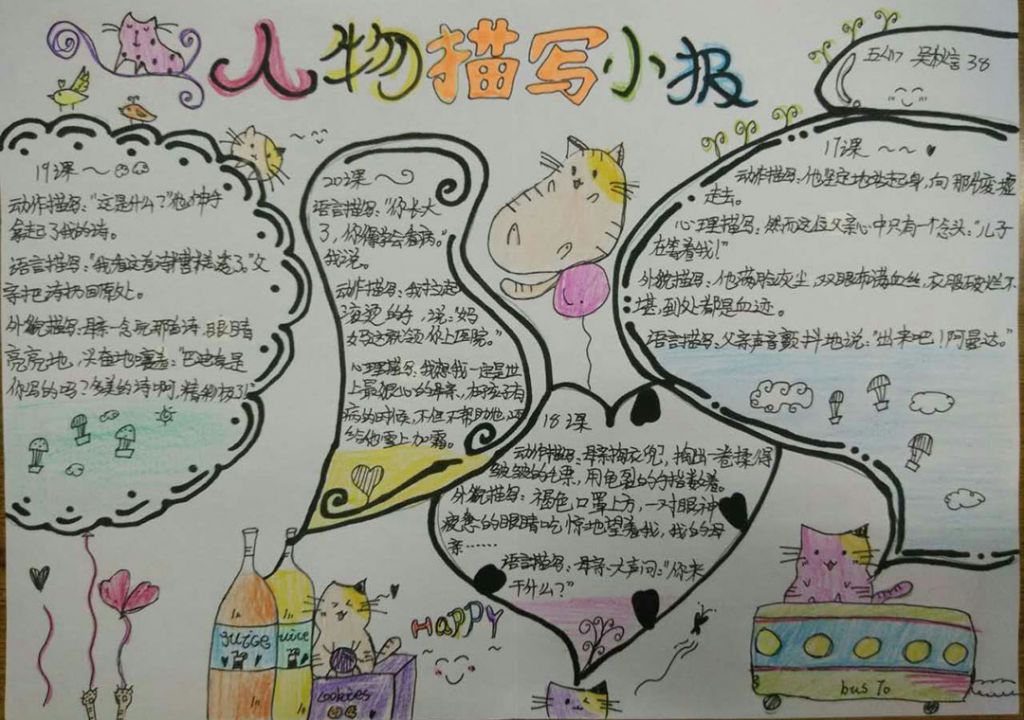 人物描写小报
五(7) 吴 38
19课~
动作描写:“这是什么?”他伸手
拿起了我的诗。
语言描写:“我看这首诗糟糕透了。”父
亲把诗扔回原处。
外貌描写:母亲一念完那首诗,眼睛
亮亮地,兴奋地嚷着:“巴迪真是
你写的吗?多美的诗啊,精彩极了!”
20课~
语言描写:“你长大
了,你得学会看病。”
我说。
动作描写:我拉起
滚烫的手,说:妈
妈这就领你上医院。”
心理描写:我想我一定是世
上最狠心的母亲,在孩子有
病的时候,不但不帮助他,还
给他雪上加霜。
17课 ~~
动作描写:他坚定地站起身,向那片废墟
走去。
心理描写:然而这位父亲心中只有一个念头:“儿子
在等着我!”
外貌描写:他满脸灰尘,双眼布满血丝,衣服破烂不
堪,到处都是血迹。
语言描写:父亲声音颤抖地说:“出来吧!阿曼达。”
18课
动作描写:母亲掏衣兜,掏出一卷揉得
皱皱的毛票,用龟裂的手指数着。
外貌描写:褐色口罩上方,一对眼神
疲惫的眼睛吃惊地望着我,我的母
亲……
语言描写:母亲大声问:“你来
干什么?”
juice
juice
HaPPY
cookies
bus To